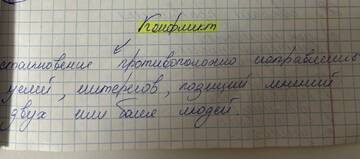 Конфликт
столкновение противоположно направленн
целей, интересов, позиций мнений
двух или более людей